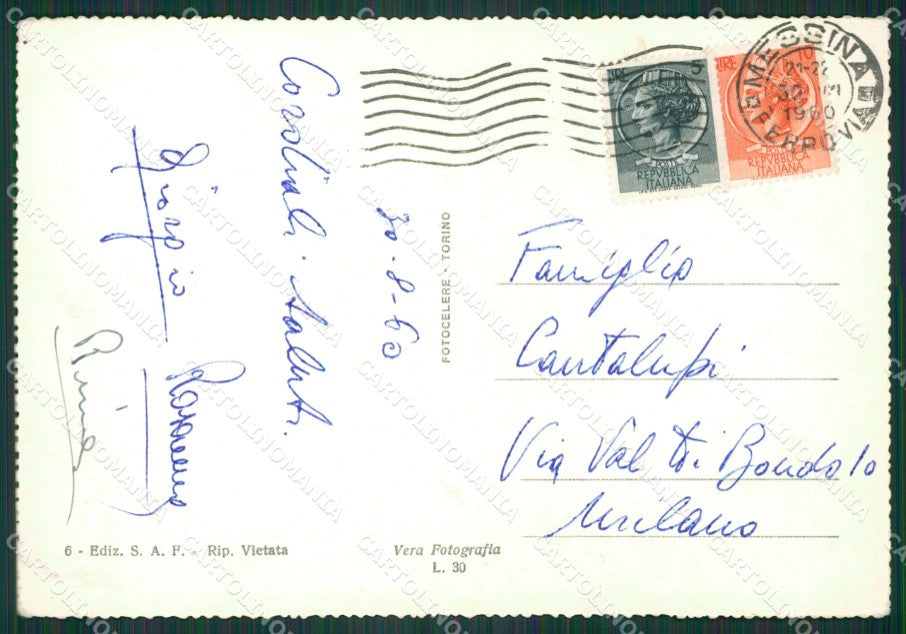 Cordiali saluti.
30-8-60
Giorgio
Rosanna
Rina
FOTOCELERE · TORINO
6 - Ediz. S. A. F. - Rip. Vietata
Vera Fotografia
L. 30
LIRE 5
POSTE
REPVBBLICA
ITALIANA
LIRE 10
POSTE
REPVBBLICA
ITALIANA
MESSINA
21-22
30
1960
FERROVIA
Famiglia
Cantalupi
Via Val di Bondo 10
Milano
CARTOLINOMANIA